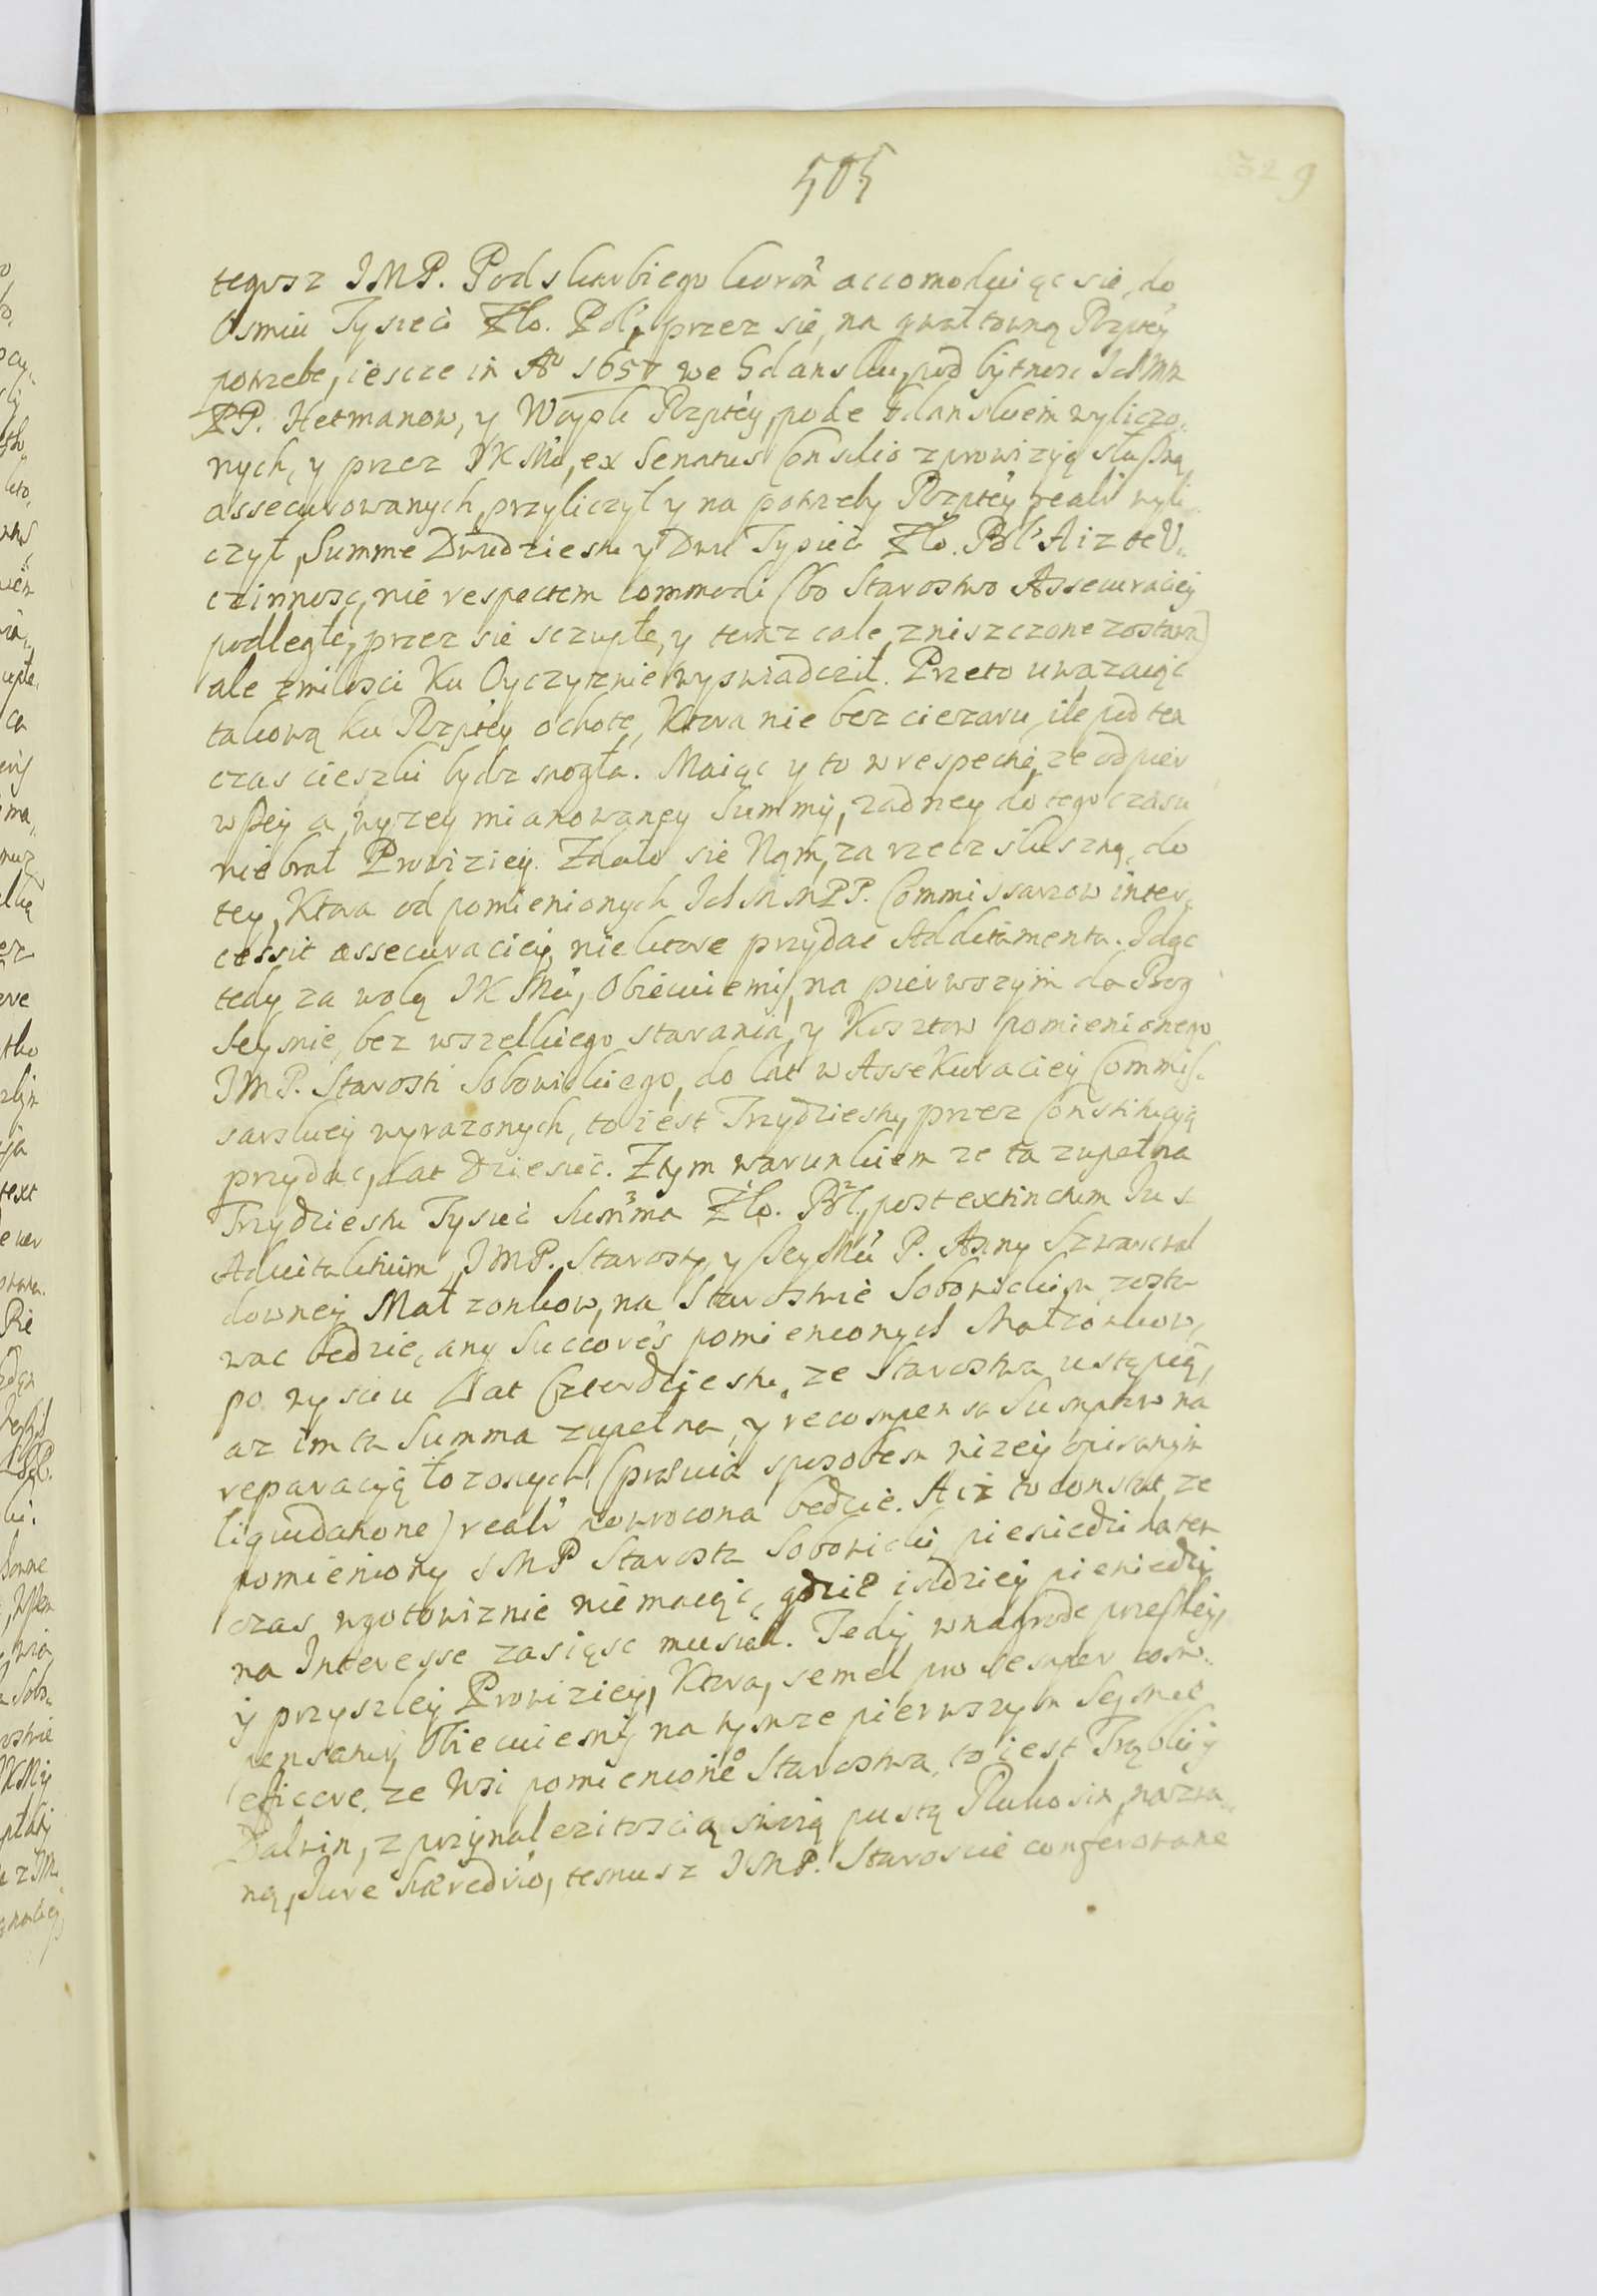 505
329
tegosz JMP. Podskarbiego koron accomoduiąc się, do
Osmiu Tysięcÿ Zło. Pol. przez się, na gwałtowną Rzptey
potrzebę, iescze in A° 1657 we Gdansku, pod bytnosc IchMM
PP. Hetmanow, y Woysk Rzptéy, pode Gdanskiem wyliczo„
nych, y przez JKMć, ex Senatus Consilio z prowizyą słuszną
assecurowanych, przyliczył y na potrzeby Rzptéy realr wyli„
czył, Summę Dwudziestu y Dwu Tysięcÿ Zło. Pol. A iz te U„
czinnosc, nie respectem commodi (bo Starostwo Assecuraciey
podległe, przez się sczupłe, y teraz cale zniszczone zostawa)
ale z miłosci Ku Oyczyznie wyswiadcził. Przeto uwazaiąc
takową ku Rzptey ochotę, Ktora nie bez cięzaru, ile pod ten
czas cieszki bydz mogła. Maiąc y to w respecie, ze od pier
wszey a wyzey mianowaney Summy, zadney do tego czasu
nie brał Prowiziey. Zdało się Nam, za rzecz słuszną, do
tey, Ktora od pomienionych IchMMPP. Commissarzow inter„
cessit assecuraciey, niektore przydać Additamenta. Idąc
tedy za wolą JKMci, Obiecuiemy, na pierwszym da Bog
Seymie, bez wszelkiego starania, y Kosztow pomienionego
JMP. Starosti Sobowickiego, do lat w AsseKuraciey Commis„
sarskiey wyrazonych, to iest Trzydziestu, przez Constitucyą
przydac, Lat Dziesięć. Z tym warunkiem ze ta zupełna
Trzydziestu Tysięcÿ Summa Zło. Pol., post extinctum Jus
Advitalitium, JMP. Starosty, y Jey Mci P. Anny Szwarcwal
downey Małzonkow, na Starostwie Sobowickim zosta
wac będzie, any Succores pomienionych Małzonkow,
po wysciu Lat Czterdziestu, ze Starostwa ustąpią,
az im ta Summa zupełna, y recompensa Sumptow na
reparacyą łozonych, (prawia sposobem nizey opisanym
liquidatione) realr powrocona będzie. A iż to constat, ze
pomieniony JMP Starosta Sobowicki, pieniedzi na ten
czas wgotowiznie nie maiąc, gdzie indziey pieniedzi
na Interesse zasiąsc musiał. Tedy w nagrode przeszłey,
y przyszley Prowiziey, Ktora, semel pro semper com„
pensatur, Obiecuiemy na tymze pierwszym Seymie
eficere, ze Wsi pomienione° Starostwa, to iest Trąbki y
Dalwin, z przynalezitoscią swoią pustą Rukosin nazwa„
ną, Jure Hæredrio, temusz JMP. Staroscie conferowane